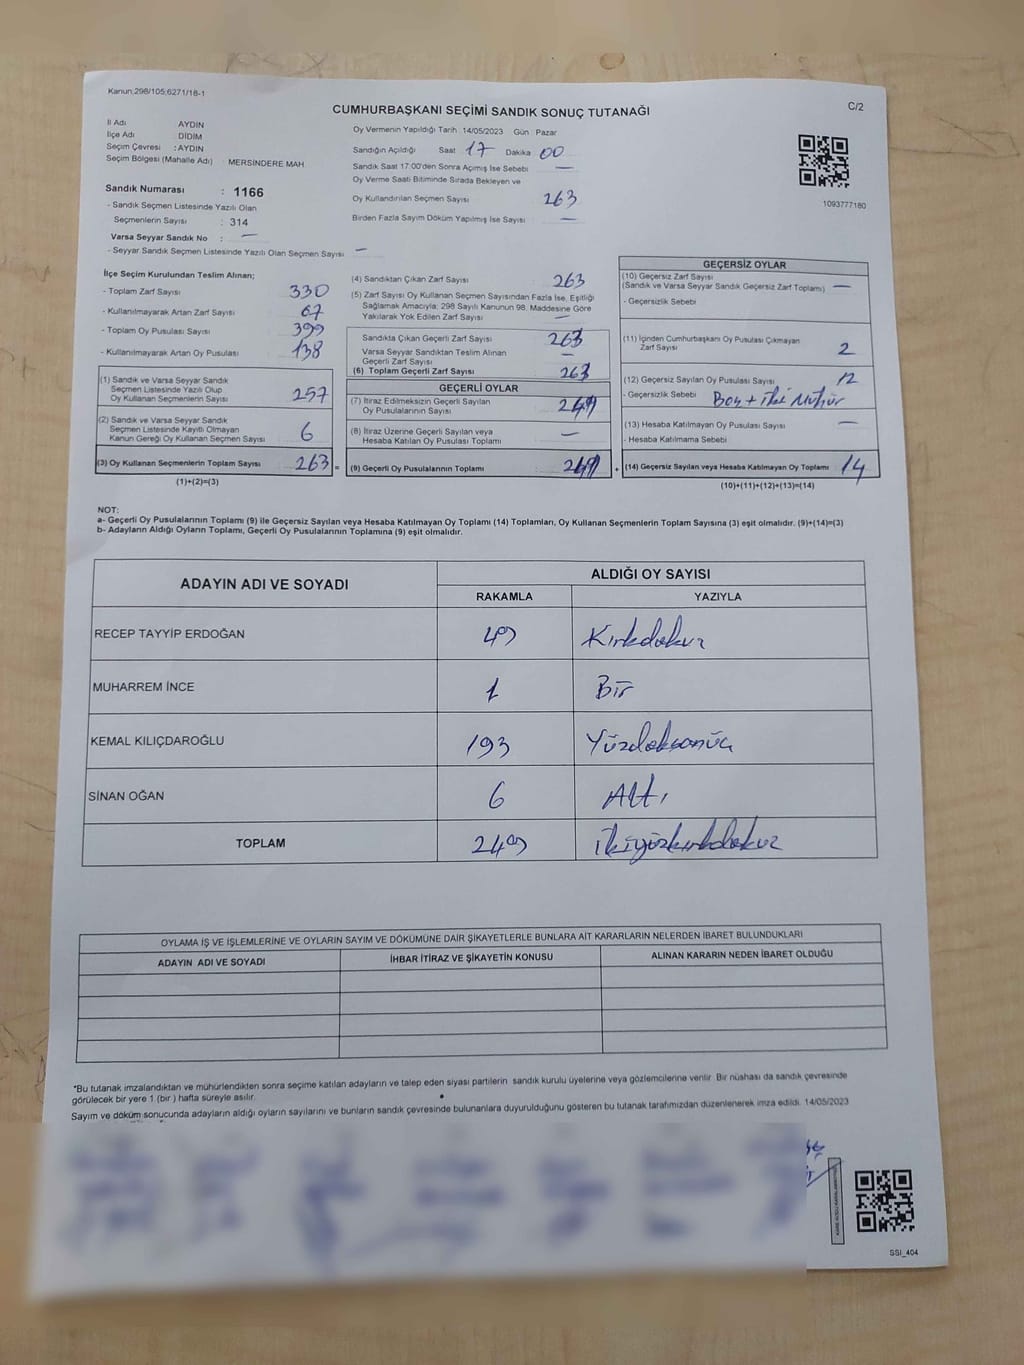 Kanun:298/105;6271/18-1
CUMHURBAŞKANI SEÇİMİ SANDIK SONUÇ TUTANAĞI
C/2
İl Adı : AYDIN
İlçe Adı : DİDİM
Seçim Çevresi : AYDIN
Seçim Bölgesi (Mahalle Adı) : MERSİNDERE MAH.
Sandık Numarası : 1166
- Sandık Seçmen Listesinde Yazılı Olan
Seçmenlerin Sayısı : 314
Varsa Seyyar Sandık No : —
- Seyyar Sandık Seçmen Listesinde Yazılı Olan Seçmen Sayısı : —
Oy Vermenin Yapıldığı Tarih 14/05/2023 Gün : Pazar
Sandığın Açıldığı Saat 17 Dakika 00
Sandık Saat 17:00'den Sonra Açımış İse Sebebi —
Oy Verme Saati Bitiminde Sırada Bekleyen ve
Oy Kullandırılan Seçmen Sayısı 263
Birden Fazla Sayım Döküm Yapılmış İse Sayısı —
1093777180
İlçe Seçim Kurulundan Teslim Alınan;
- Toplam Zarf Sayısı 330
- Kullanılmayarak Artan Zarf Sayısı 67
- Toplam Oy Pusulası Sayısı 399
- Kullanılmayarak Artan Oy Pusulası 138
(1) Sandık ve Varsa Seyyar Sandık
Seçmen Listesinde Yazılı Olup
Oy Kullanan Seçmenlerin Sayısı 257
(2) Sandık ve Varsa Seyyar Sandık
Seçmen Listesinde Kayıtlı Olmayan
Kanun Gereği Oy Kullanan Seçmen Sayısı 6
(3) Oy Kullanan Seçmenlerin Toplam Sayısı 263 =
(1)+(2)=(3)
(4) Sandıktan Çıkan Zarf Sayısı 263
(5) Zarf Sayısı Oy Kullanan Seçmen Sayısından Fazla İse, Eşitliği
Sağlamak Amacıyla; 298 Sayılı Kanunun 98. Maddesine Göre
Yakılarak Yok Edilen Zarf Sayısı —
Sandıkta Çıkan Geçerli Zarf Sayısı 263
Varsa Seyyar Sandıktan Teslim Alınan
Geçerli Zarf Sayısı —
(6) Toplam Geçerli Zarf Sayısı 263
GEÇERLİ OYLAR
(7) İtiraz Edilmeksizin Geçerli Sayılan
Oy Pusulalarının Sayısı 249
(8) İtiraz Üzerine Geçerli Sayılan veya
Hesaba Katılan Oy Pusulası Toplamı —
(9) Geçerli Oy Pusulalarının Toplamı 249 +
GEÇERSİZ OYLAR
(10) Geçersiz Zarf Sayısı
(Sandık ve Varsa Seyyar Sandık Geçersiz Zarf Toplamı) —
- Geçersizlik Sebebi
(11) İçinden Cumhurbaşkanı Oy Pusulası Çıkmayan
Zarf Sayısı 2
(12) Geçersiz Sayılan Oy Pusulası Sayısı 12
- Geçersizlik Sebebi Boş + İki Mühür
(13) Hesaba Katılmayan Oy Pusulası Sayısı —
- Hesaba Katılmama Sebebi
(14) Geçersiz Sayılan veya Hesaba Katılmayan Oy Toplamı 14
(10)+(11)+(12)+(13)=(14)
NOT:
a- Geçerli Oy Pusulalarının Toplamı (9) ile Geçersiz Sayılan veya Hesaba Katılmayan Oy Toplamı (14) Toplamları, Oy Kullanan Seçmenlerin Toplam Sayısına (3) eşit olmalıdır. (9)+(14)=(3)
b- Adayların Aldığı Oyların Toplamı, Geçerli Oy Pusulalarının Toplamına (9) eşit olmalıdır.
ADAYIN ADI VE SOYADI
ALDIĞI OY SAYISI
RAKAMLA YAZIYLA
RECEP TAYYİP ERDOĞAN 49 Kırkdokuz
MUHARREM İNCE 1 Bir
KEMAL KILIÇDAROĞLU 193 Yüzdoksanüç
SİNAN OĞAN 6 Altı
TOPLAM 249 ikiyüzkırkdokuz
OYLAMA İŞ VE İŞLEMLERİNE VE OYLARIN SAYIM VE DÖKÜMÜNE DAİR ŞİKAYETLERLE BUNLARA AİT KARARLARIN NELERDEN İBARET BULUNDUKLARI
ADAYIN ADI VE SOYADI İHBAR İTİRAZ VE ŞİKAYETİN KONUSU ALINAN KARARIN NEDEN İBARET OLDUĞU
*Bu tutanak imzalandıktan ve mühürlendikten sonra seçime katılan adayların ve talep eden siyasi partilerin sandık kurulu üyelerine veya gözlemcilerine verilir. Bir nüshası da sandık çevresinde
görülecek bir yere 1 (bir ) hafta süreyle asılır.
Sayım ve döküm sonucunda adayların aldığı oyların sayılarını ve bunların sandık çevresinde bulunanlara duyurulduğunu gösteren bu tutanak tarafımızdan düzenlenerek imza edildi. 14/05/2023
SSI_404